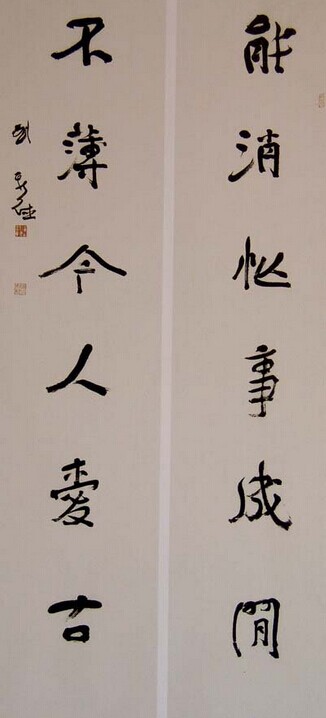 能消忙事成閒
不薄今人愛古